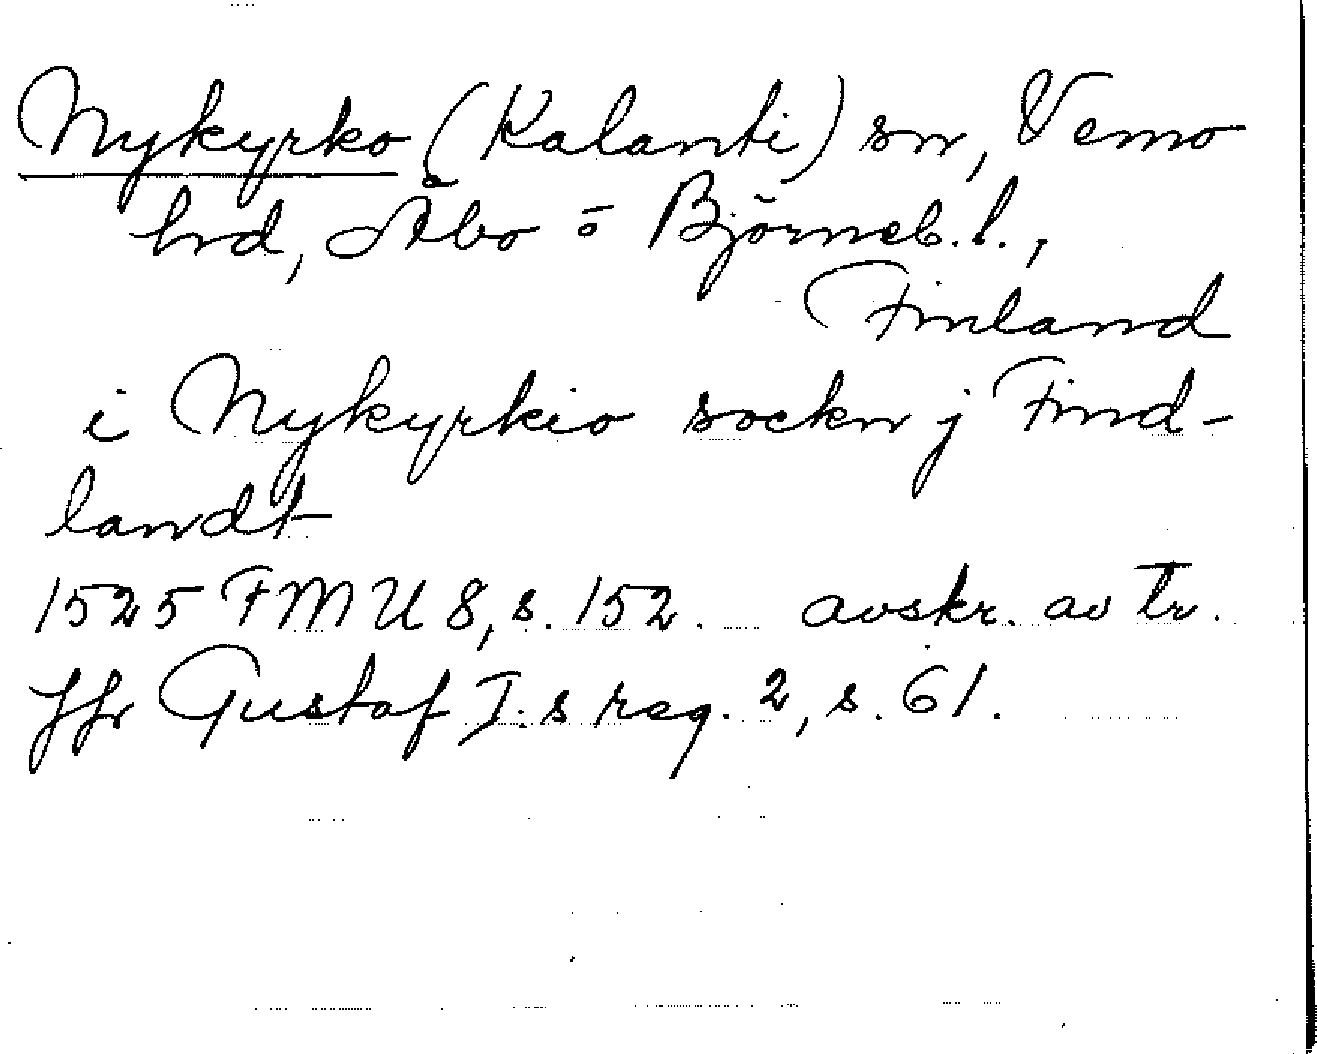 Nykyrko (Kalanti) sn, Vemo
hrd, Åbo o Björneb. l.,
Finland
i Nykyrkio sockn j Find-
landt
1525 FMU 8, s. 152. avskr. av tr.
Jfr Gustaf I:s reg. 2, s. 61.